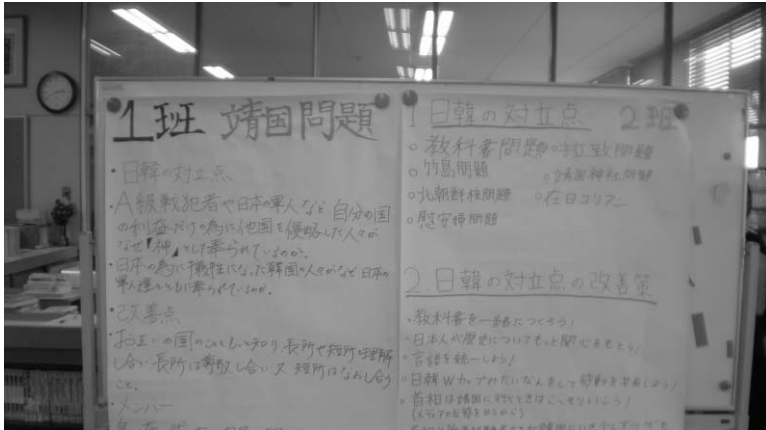 1班 靖国問題
・日韓の対立点
・A級戦犯者や日本の軍人など、自分の国
の利益だけの為に他国を侵略した人々が
なぜ『神』として奉られているのか。
・日本の為に犠牲になった韓国の人々がなぜ日本の
軍人達とともに奉られているのか。
・改善点
お互いの国のことをもっと知り、長所や短所を理解
し合い、長所は尊敬し合い、又、短所はなおし合う
こと。
・メンバー
1 日韓の対立点 2班
○教科書問題 ○拉致問題
○竹島問題 ○靖国神社問題
○北朝鮮核問題 ○在日コリアン
○慰安婦問題
2.日韓の対立点の改善策
・教科書を一緒につくろう!
・日本人が歴史についてもっと関心をもとう!
・言語を統一しよう!
・日韓Wカップみたいなんをして感動を共有しよう!
・首相は靖国に行くときはこっそりいこう!